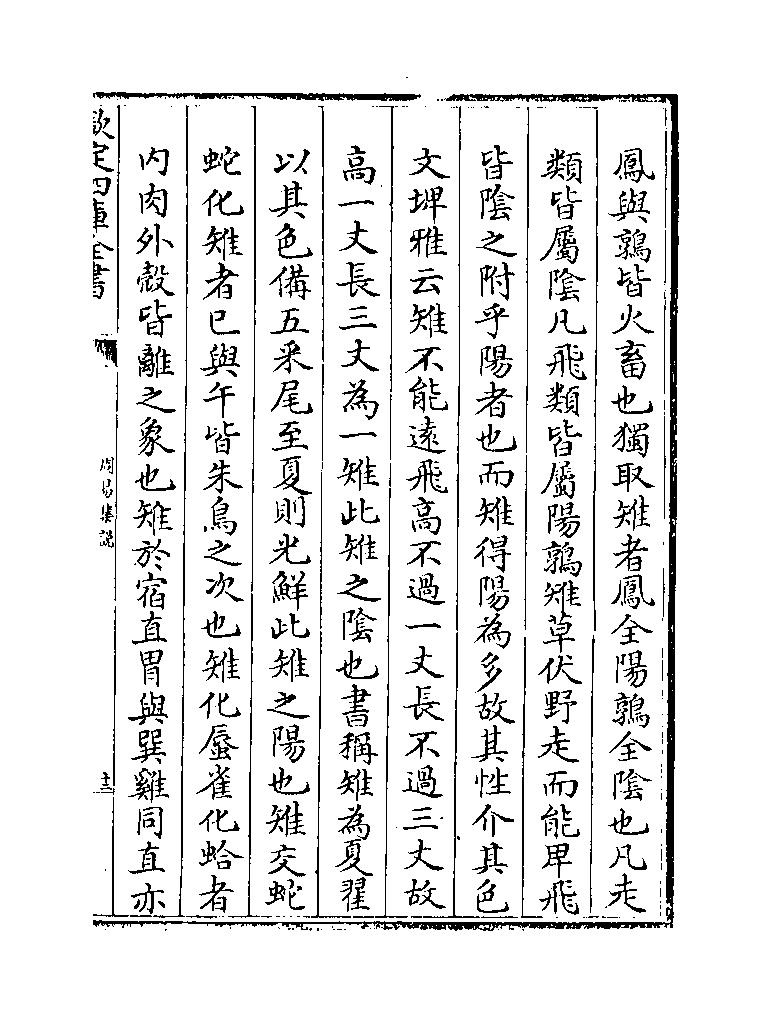 鳳與鶉皆火畜也獨取雉者鳳全陽鶉全陰也凡走
類皆屬陰凡飛類皆屬陽鶉雉草伏野走而能卑飛
皆陰之附乎陽者也而雉得陽為多故其性介其色
文埤雅云雉不能遠飛高不過一丈長不過三丈故
高一丈長三丈為一雉此雉之陰也書稱雉為夏翟
以其色備五采尾至夏則光鮮此雉之陽也雉交蛇
蛇化雉者巳與午皆朱鳥之次也雉化蜃雀化蛤者
内肉外殼皆離之象也雉於宿直胃與巽雞同直亦
欽定四庫全書
周易集說
十三